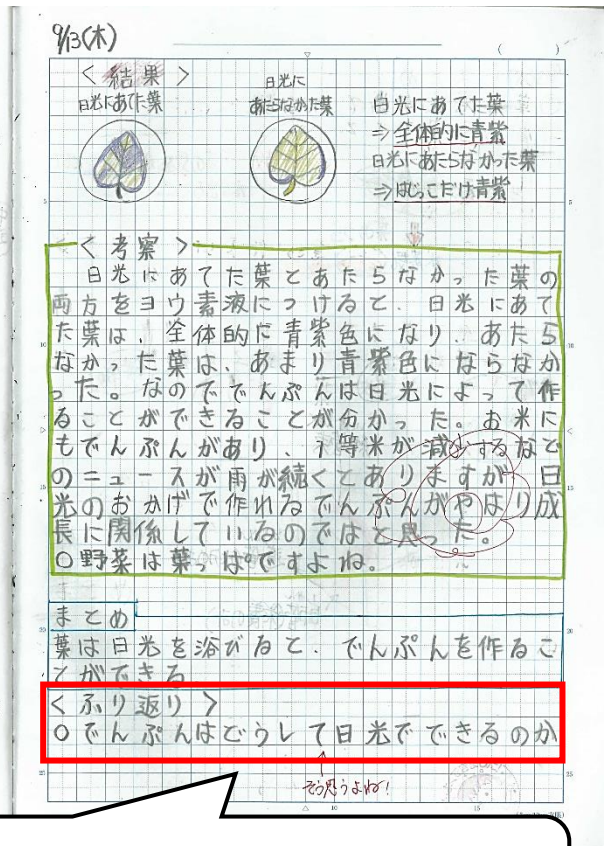 9/13(木)
(　　　)
<結果>
日光にあてた葉
日光に
あたらなかった葉
日光にあてた葉
⇒全体的に青紫
日光にあたらなかった葉
⇒はじっこだけ青紫
<考察>
日光にあてた葉とあたらなかった葉の
両方をヨウ素液につけると、日光にあて
た葉は、全体的に青紫色になり、あたら
なかった葉は、あまり青紫色にならなか
った。なのででんぷんは日光によって作
ることができることが分かった。お米に
もでんぷんがあり、1等米が減少するなど
のニュースが雨が続くとありますが、日
光のおかげで作れるでんぷんがやはり成
長に関係しているのではと思った。
○野菜は葉っぱですよね。
まとめ
葉は日光を浴びると、でんぷんを作るこ
とができる
<ふり返り>
○でんぷんはどうして日光でできるのか
そう思うよね!